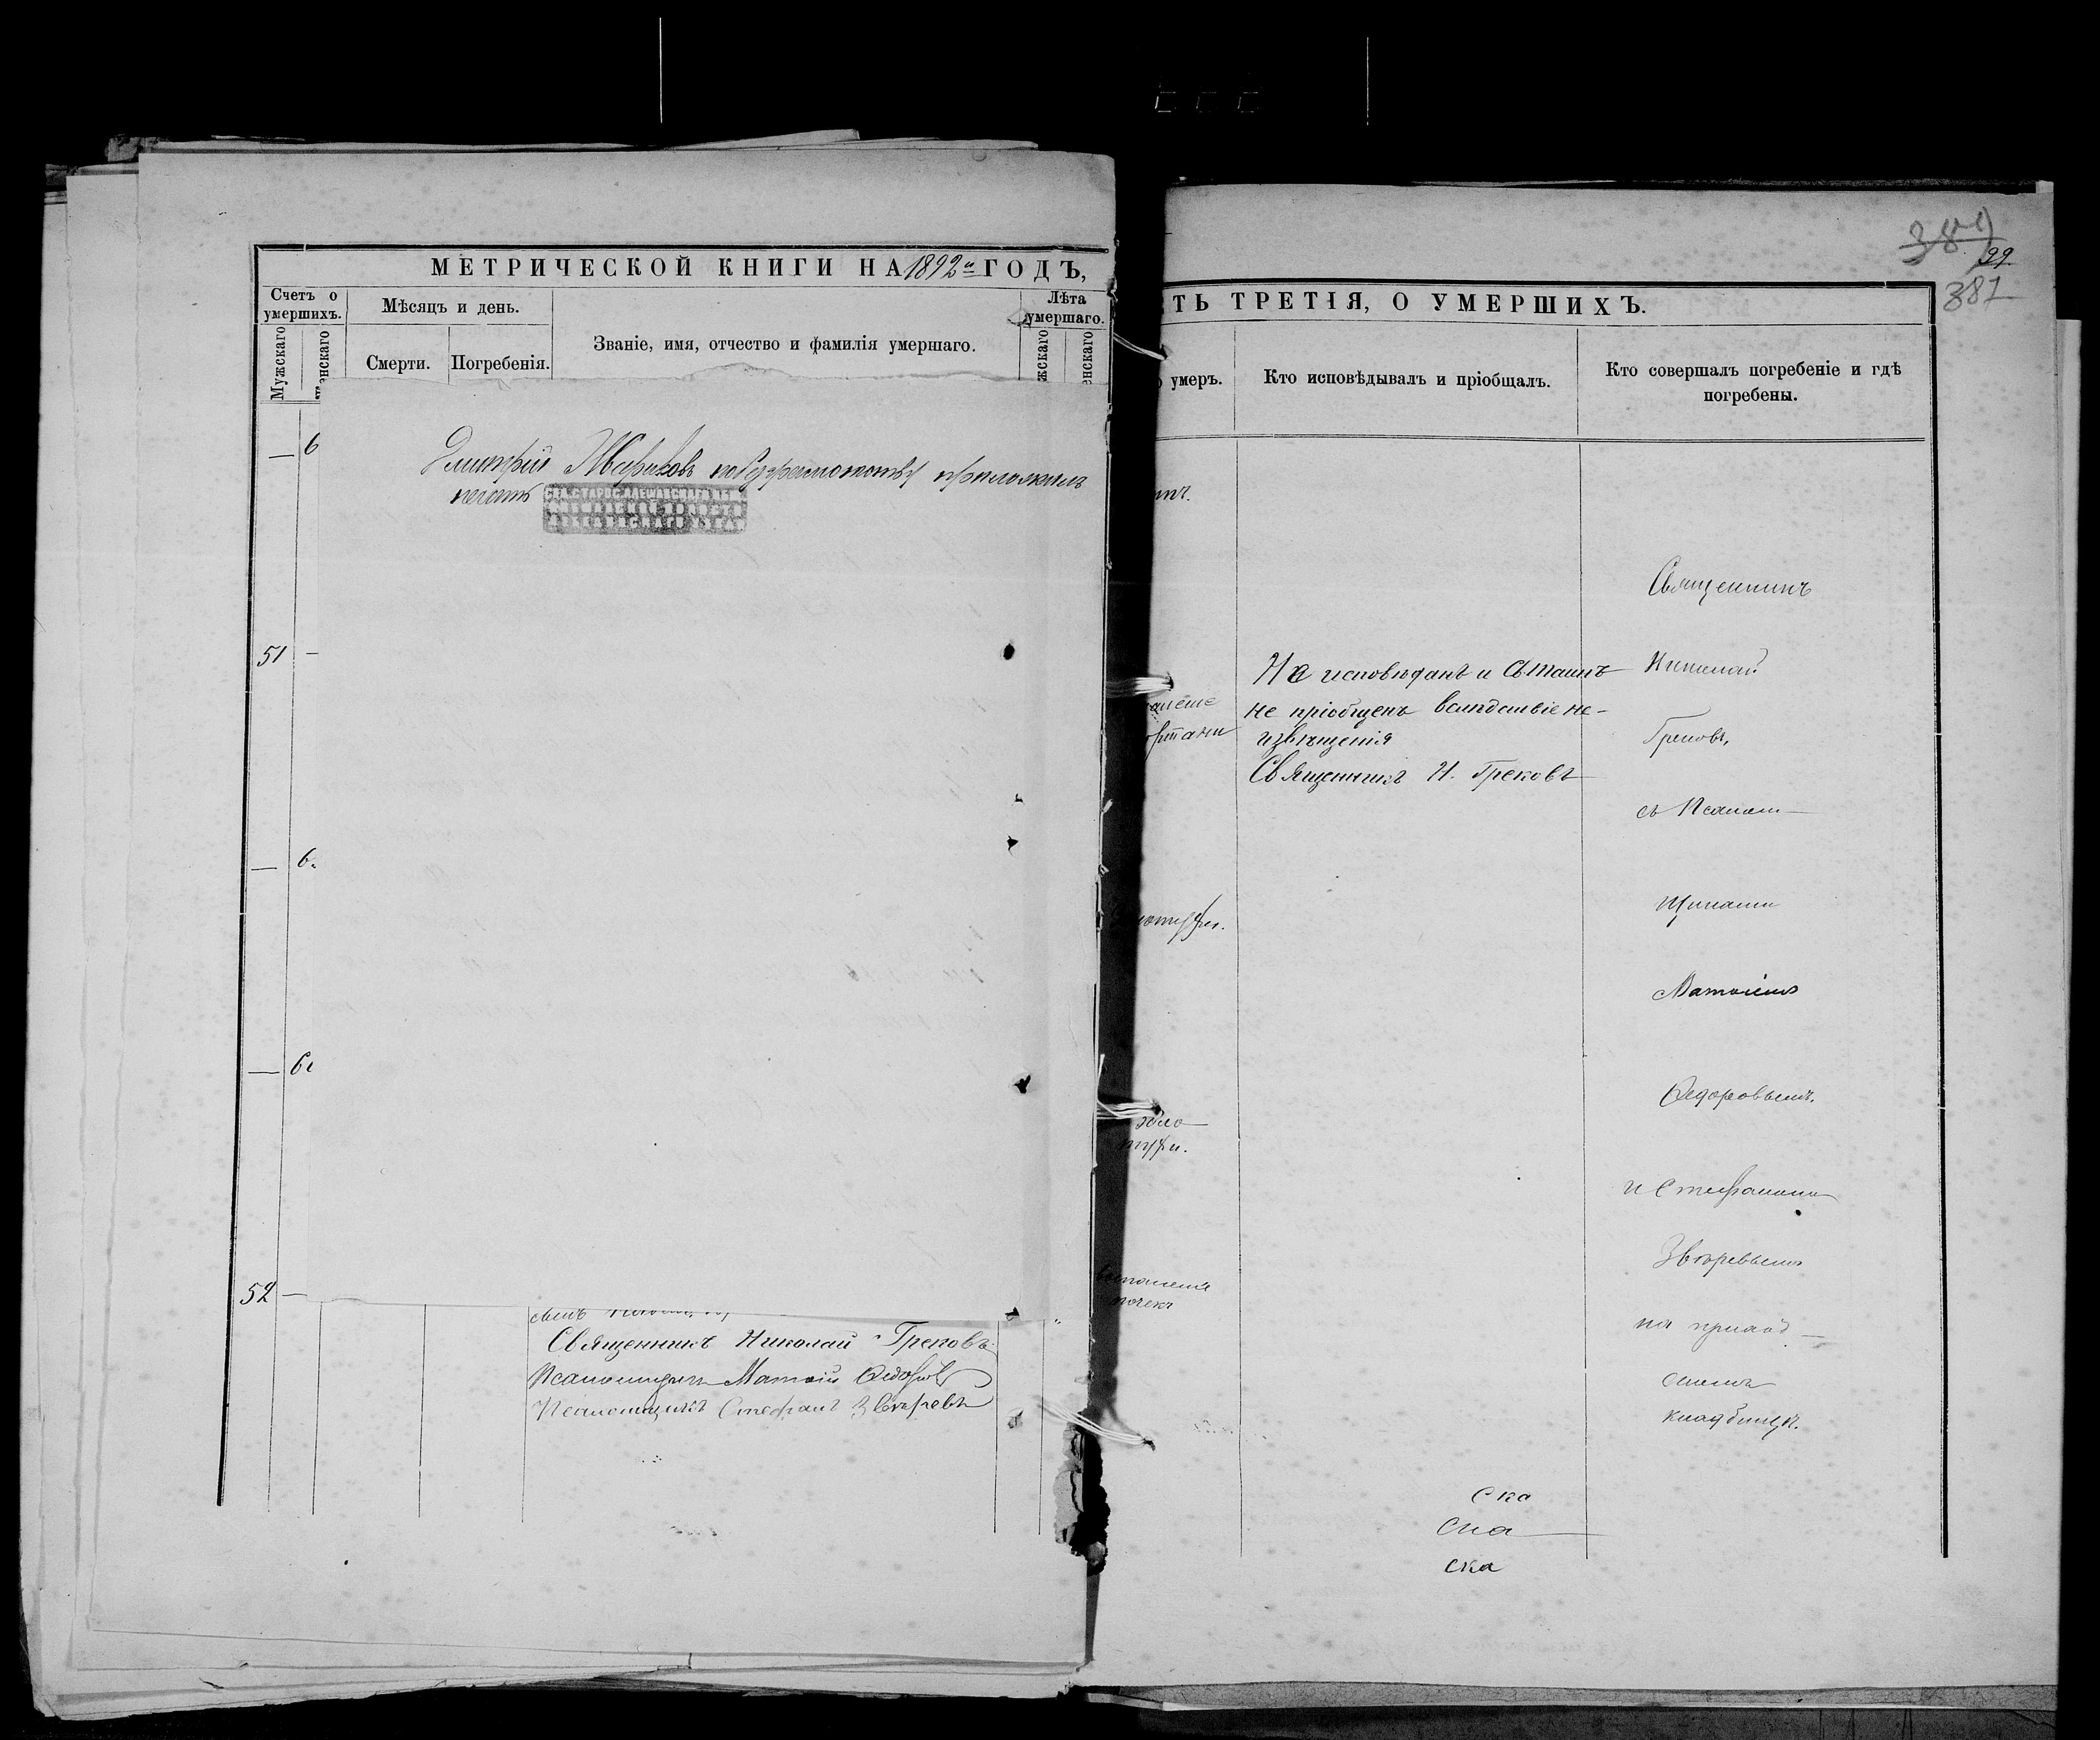 МЕТРИЧЕСКОЙ КНИГИ НА 1892й ГОДЪ,
Счетъ о умершихъ.
Мужскаго
Мѣсяцъ и день.
Смерти.
Погребенія.
Званіе, имя, отчество и фамилія умершаго.
Лѣта умершаго.
Дмитрій Жариковъ по безграмотству приложилъ
печать
51
52
Священникъ Николай Грековъ
Псаломщикъ Матѳій Ѳедоровъ
Псаломщикъ Стефанъ Звѣревъ
99.
381
ТЬ ТРЕТІЯ, О УМЕРШИХЪ.
умеръ.
Кто исповѣдывалъ и пріобщалъ.
Кто совершалъ погребеніе и гдѣ
погребены.
Не исповѣданъ и Св. Таинъ
не пріобщенъ вслѣдствіе не-
извѣщенія
Священникъ Н. Грековъ
почекъ
Священникъ
Николай
Грековъ,
съ Псалом-
щиками
Матѳіемъ
Ѳедоровымъ.
и Стефаномъ
Звѣревымъ
на приход-
скомъ
кладбищѣ.
ска
ска
ска